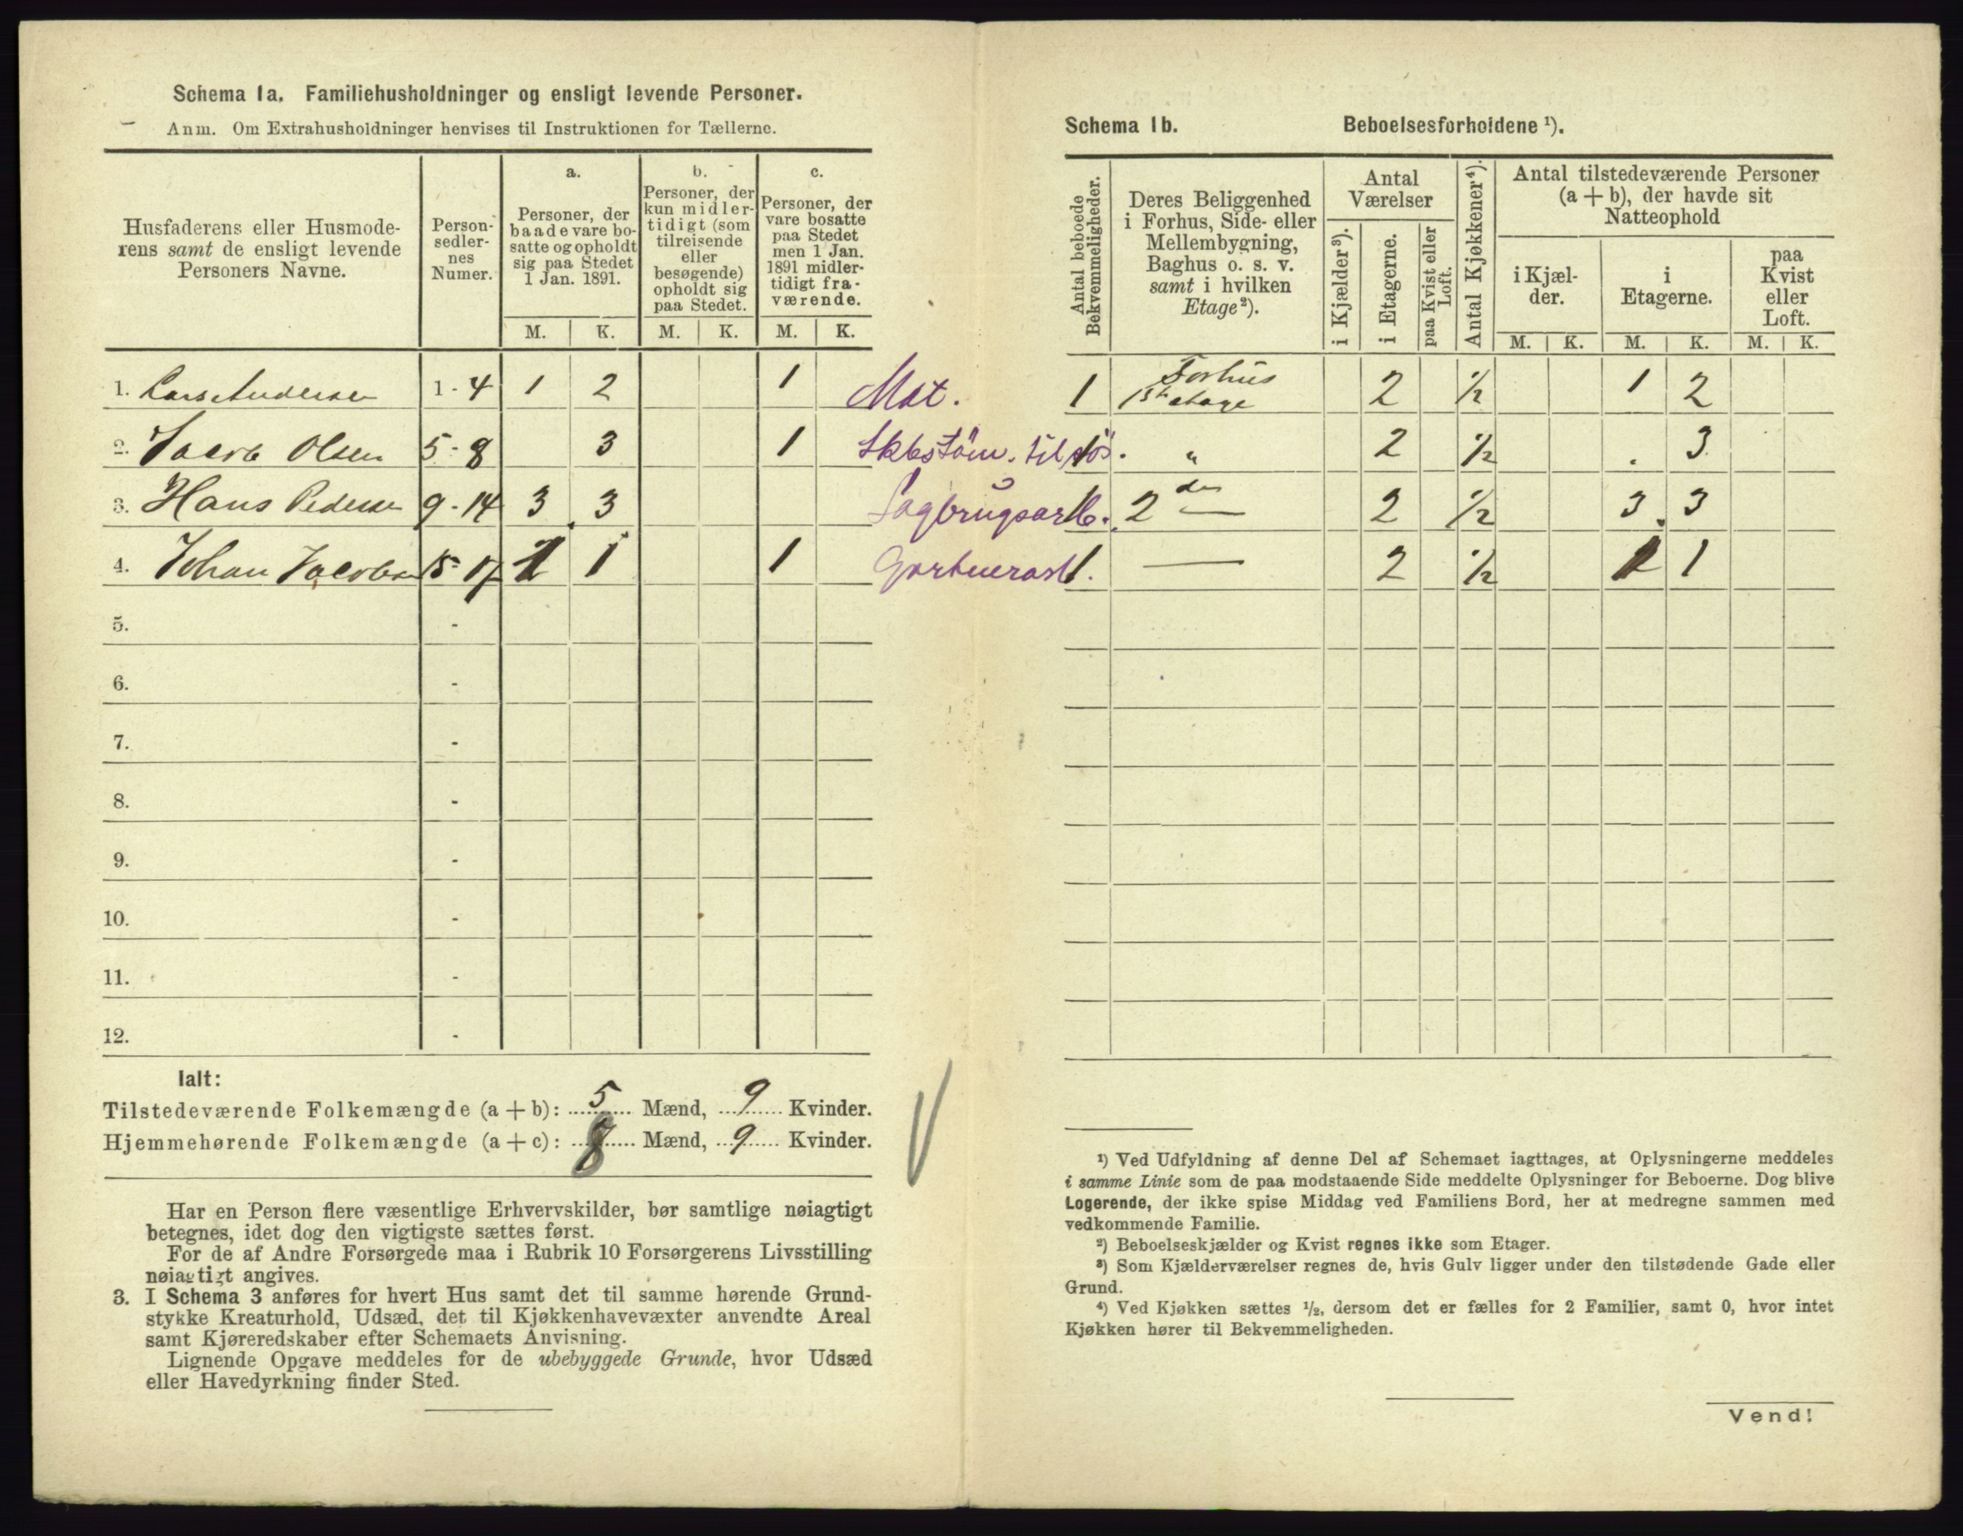 Schema 1a. Familiehusholdninger og ensligt levende Personer.
Anm. Om Extrahusholdninger henvises til Instruktionen for Tællerne.
Husfaderens eller Husmoderens samt de ensligt levende Personers Navne.
Personsedlernes Numer.
a. Personer, der baade vare bosatte og opholdt sig paa Stedet 1 Jan. 1891.
b. Personer, der kun midlertidigt (som tilreisende eller besøgende) opholdt sig paa Stedet.
c. Personer, der vare bosatte paa Stedet men 1 Jan. 1891 midlertidigt fraværende.
M. K. M. K. M. K.
1. Lars Andersen 1-4 1 2 1 Mat.
2. Jacob Olsen 5-8 3 1 til sös.
3. Hans Pedersen 9-14 3 3 Sagbrugsarb.
4. Johan Jacobsen 15-17 1 1 1
5. -
6. -
7. -
8. -
9. -
10. -
11. -
12. -
Ialt:
Tilstedeværende Folkemængde (a + b): 5 Mænd, 9 Kvinder.
Hjemmehørende Folkemængde (a + c): 8 Mænd, 9 Kvinder.
Har en Person flere væsentlige Erhvervskilder, bør samtlige nøiagtigt
betegnes, idet dog den vigtigste sættes først.
For de af Andre Forsørgede maa i Rubrik 10 Forsørgerens Livsstilling
nøiagtigt angives.
3. I Schema 3 anføres for hvert Hus samt det til samme hørende Grund-
stykke Kreaturhold, Udsæd, det til Kjøkkenhavevæxter anvendte Areal
samt Kjøreredskaber efter Schemaets Anvisning.
Lignende Opgave meddeles for de ubebyggede Grunde, hvor Udsæd
eller Havedyrkning finder Sted.
Schema 1b. Beboelsesforholdene ¹).
Antal beboede Bekvemmeligheder.
Deres Beliggenhed i Forhus, Side- eller Mellembygning, Baghus o. s. v. samt i hvilken Etage²).
Antal Værelser
i Kjælder³).
i Etagerne.
paa Kvist eller Loft.
Antal Kjøkkener⁴).
Antal tilstedeværende Personer (a + b), der havde sit Natteophold
i Kjælder.
i Etagerne.
paa Kvist eller Loft.
M. K. M. K. M. K.
1 Forhus 1ste etage 2 ½ 1 2
1 " 2 ½ . 3
1 2den — 2 ½ 3 3
1 — 2 ½ 1 1
¹) Ved Udfyldning af denne Del af Schemaet iagttages, at Oplysningerne meddeles
i samme Linie som de paa modstaaende Side meddelte Oplysninger for Beboerne. Dog blive
Logerende, der ikke spise Middag ved Familiens Bord, her at medregne sammen med
vedkommende Familie.
²) Beboelseskjælder og Kvist regnes ikke som Etager.
³) Som Kjælderværelser regnes de, hvis Gulv ligger under den tilstødende Gade eller
Grund.
⁴) Ved Kjøkken sættes ½, dersom det er fælles for 2 Familier, samt 0, hvor intet
Kjøkken hører til Bekvemmeligheden.
Vend!